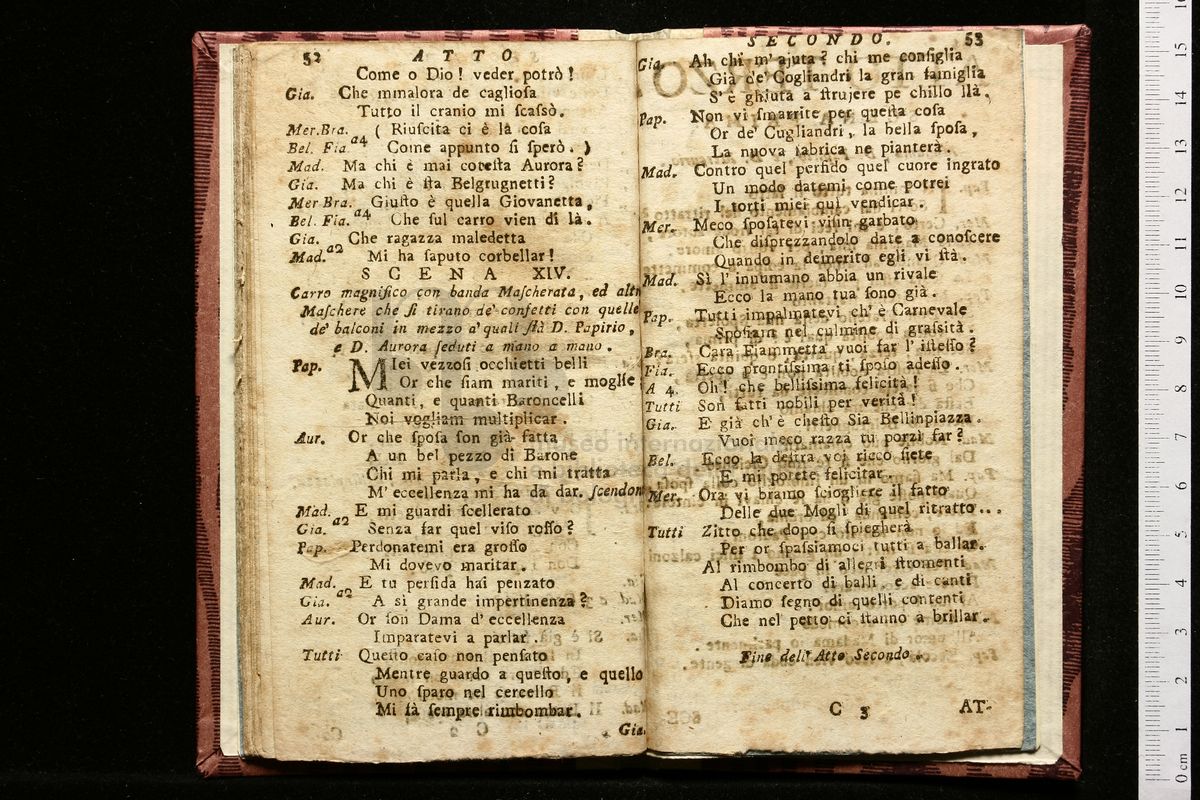 52 ATTO
Come o Dio! veder potrò!
Gia. Che mmalora de cagliosa
Tutto il cranio mi scassò.
Mer.Bra. ( Riuscita ci è la cosa
Bel. Fia. a4 Come appunto si sperò. )
Mad. Ma chi è mai cotesta Aurora?
Gia. Ma chi è sta Belgrugnetti?
Mer Bra. Giusto è quella Giovanetta,
Bel. Fia. a4 Che sul carro vien di là.
Gia. Che ragazza maledetta
Mad. a2 Mi ha saputo corbellar!
SCENA XIV.
Carro magnifico con banda Mascherata, ed altr
Maschere che si tirano de' confetti con quelle
de' balconi in mezzo a' quali stà D. Papirio,
e D. Aurora seduti a mano a mano.
Pap. MIei vezzosi occhietti belli
Or che siam mariti, e moglie
Quanti, e quanti Baroncelli
Noi vogliam multiplicar.
Aur. Or che sposa son già fatta
A un bel pezzo di Barone
Chi mi parla, e chi mi tratta
M' eccellenza mi ha da dar. scendon
Mad. E mi guardi scellerato
Gia. a2 Senza far quel viso rosso?
Pap. Perdonatemi era grosso
Mi dovevo maritar.
Mad. E tu perfida hai penzato
Gia. a2 A sì grande impertinenza?
Aur. Or son Dama d' eccellenza
Imparatevi a parlar.
Tutti Questo caso non pensato
Mentre guardo a questo, e quello
Uno sparo nel cercello
Mi fà sempre rimbombar.
Gia.
SECONDO. 53
Gia. Ah chi m' ajuta? chi me consiglia
Già de' Cogliandri la gran famiglia
S' è ghiuta a strujere pe chillo llà.
Pap. Non vi smarrite per questa cosa
Or de' Cugliandri, la bella sposa,
La nuova fabrica ne pianterà.
Mad. Contro quel perfido quel cuore ingrato
Un modo datemi come potrei
I torti miei qui vendicar.
Mer. Meco sposatevi visin garbato
Che disprezzandolo date a conoscere
Quando in demerito egli vi stà.
Mad. Sì l' inumano abbia un rivale
Ecco la mano tua sono già.
Pap. Tutti impalmatevi ch' è Carnevale
Sposiam nel culmine di grassità.
Bra. Cara Fiammetta vuoi far l' istesso?
Fia. Ecco prontissima ti sposo adesso.
A 4. Oh! che bellissima felicità!
Tutti Son fatti nobili per verità!
Gia. E già ch' è chesto Sia Bellinpiazza.
Vuoi meco razza tu porzì far?
Bel. Ecco la destra voi ricco siete
E mi potete felicitar.
Mer. Ora vi bramo sciogliere il fatto
Delle due Mogli di quel ritratto...
Tutti Zitto che dopo si spiegherà
Per or spassiamoci tutti a ballar.
Al rimbombo di allegri stromenti
Al concerto di balli, e di canti
Diamo segno di quelli contenti
Che nel petto ci stanno a brillar.
Fine dell' Atto Secondo.
C 3 AT-